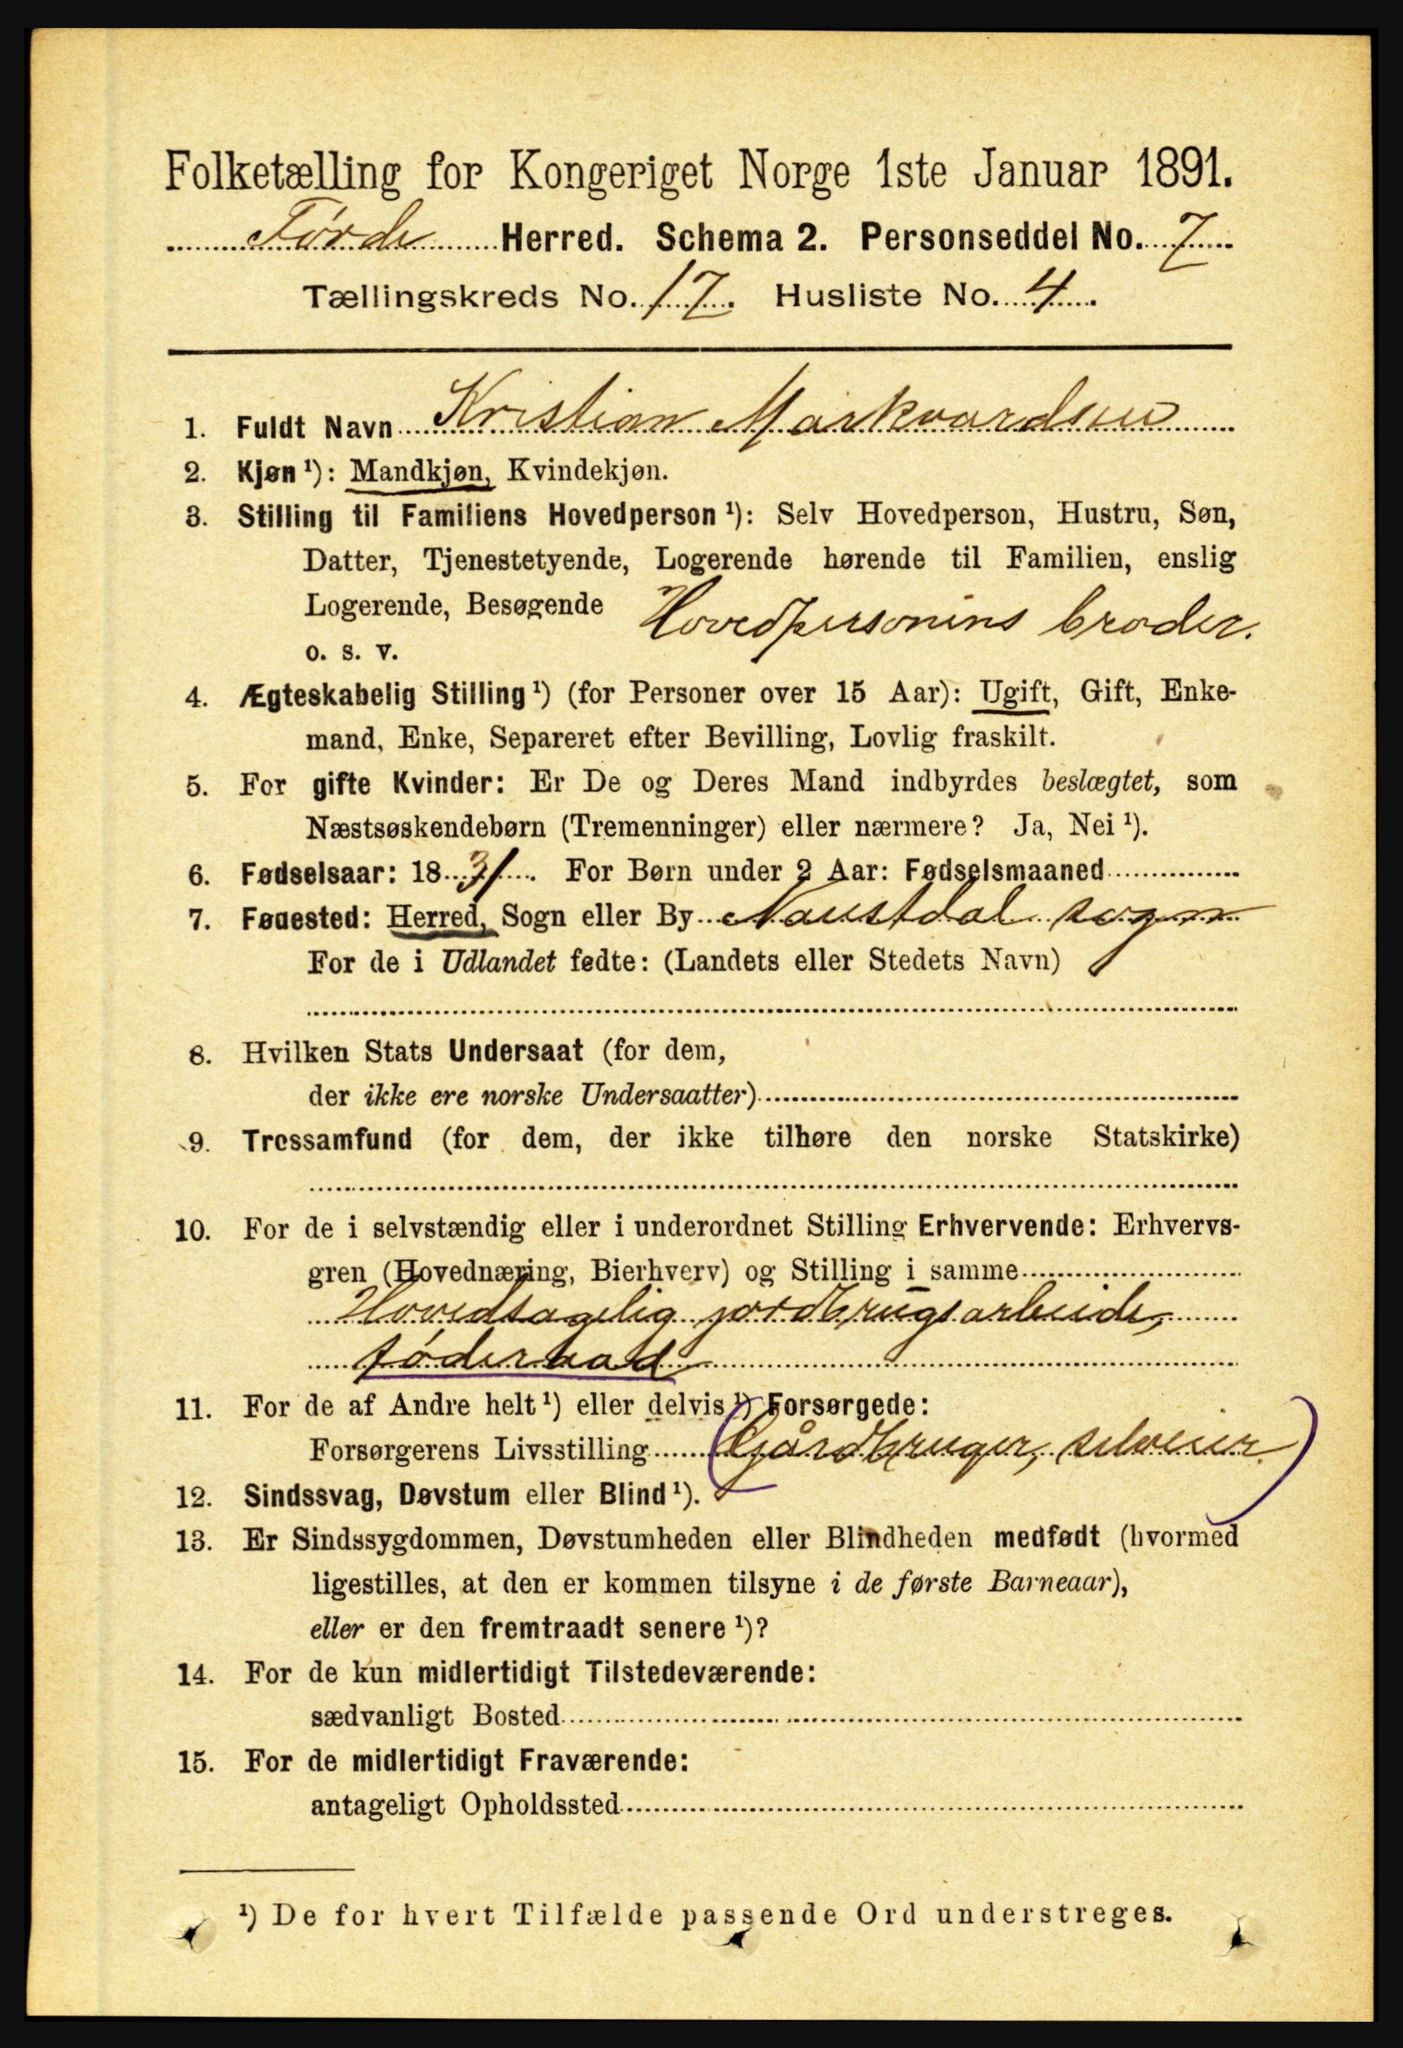 Folketælling for Kongeriget Norge 1ste Januar 1891.
Førde Herred. Schema 2. Personseddel No. 7
Tællingskreds No. 17. Husliste No. 4.
1. Fuldt Navn Kristian Markvardsen
2. Kjøn ¹): Mandkjøn, Kvindekjøn.
3. Stilling til Familiens Hovedperson ¹): Selv Hovedperson, Hustru, Søn,
Datter, Tjenestetyende, Logerende hørende til Familien, enslig
Logerende, Besøgende Hovedpersonens broder.
o. s. v.
4. Ægteskabelig Stilling ¹) (for Personer over 15 Aar): Ugift, Gift, Enke-
mand, Enke, Separeret efter Bevilling, Lovlig fraskilt.
5. For gifte Kvinder: Er De og Deres Mand indbyrdes beslægtet, som
Næstsøskendebørn (Tremenninger) eller nærmere? Ja, Nei ¹).
6. Fødselsaar: 1831. For Børn under 2 Aar: Fødselsmaaned
7. Fødested: Herred, Sogn eller By Naustdal sogn
For de i Udlandet fødte: (Landets eller Stedets Navn)
8. Hvilken Stats Undersaat (for dem,
der ikke ere norske Undersaatter)
9. Trossamfund (for dem, der ikke tilhøre den norske Statskirke)
10. For de i selvstændig eller i underordnet Stilling Erhvervende: Erhvervs-
gren (Hovednæring, Bierhverv) og Stilling i samme
Hovedsagelig jordbrugsarbeide,
føderaad
11. For de af Andre helt ¹) eller delvis ¹) Forsørgede:
Forsørgerens Livsstilling (Gårdbruger, selveier.)
12. Sindssvag, Døvstum eller Blind ¹).
13. Er Sindssygdommen, Døvstumheden eller Blindheden medfødt (hvormed
ligestilles, at den er kommen tilsyne i de første Barneaar),
eller er den fremtraadt senere ¹)?
14. For de kun midlertidigt Tilstedeværende:
sædvanligt Bosted
15. For de midlertidigt Fraværende:
antageligt Opholdssted
¹) De for hvert Tilfælde passende Ord understreges.